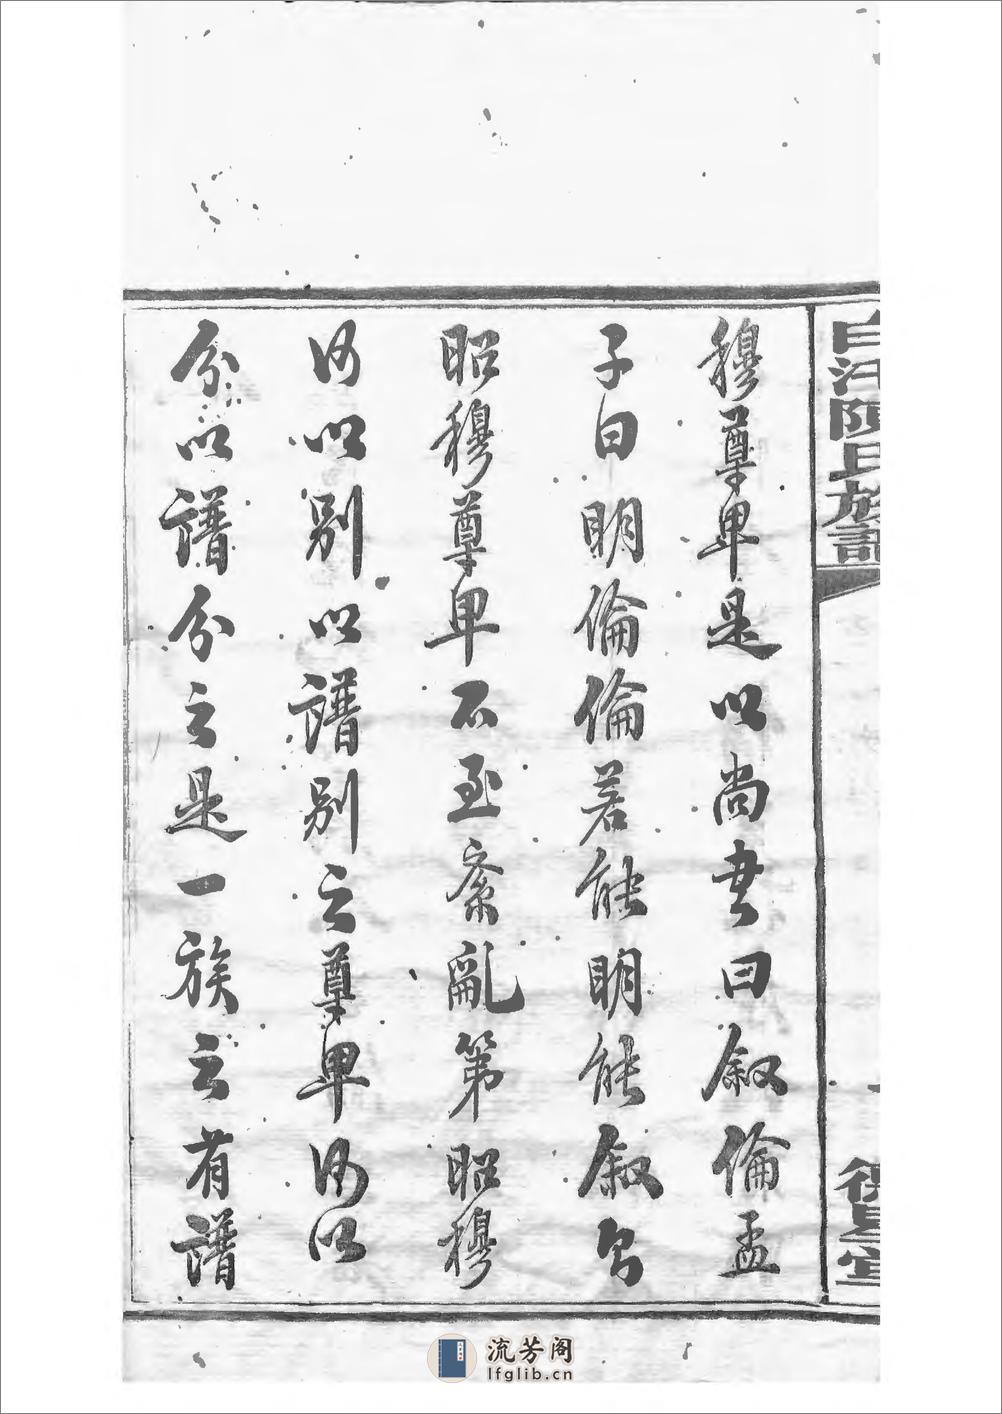 白沙陳氏族譜
一
穆尊卑是以尚書曰叙倫孟
子曰明倫倫若能明能叙則
昭穆尊卑不至紊亂第昭穆
何以别以譜别之尊卑何以
分以譜分之是一族之有譜
流芳阁
lfglib.cn